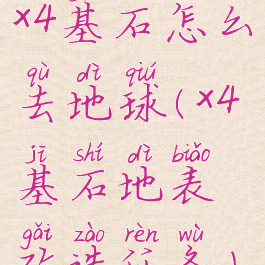 ×4基石怎么
qù dì qiú
去地球(×4
jī shí dì biǎo
基石地表
gǎi zào rèn wù
改造任务)